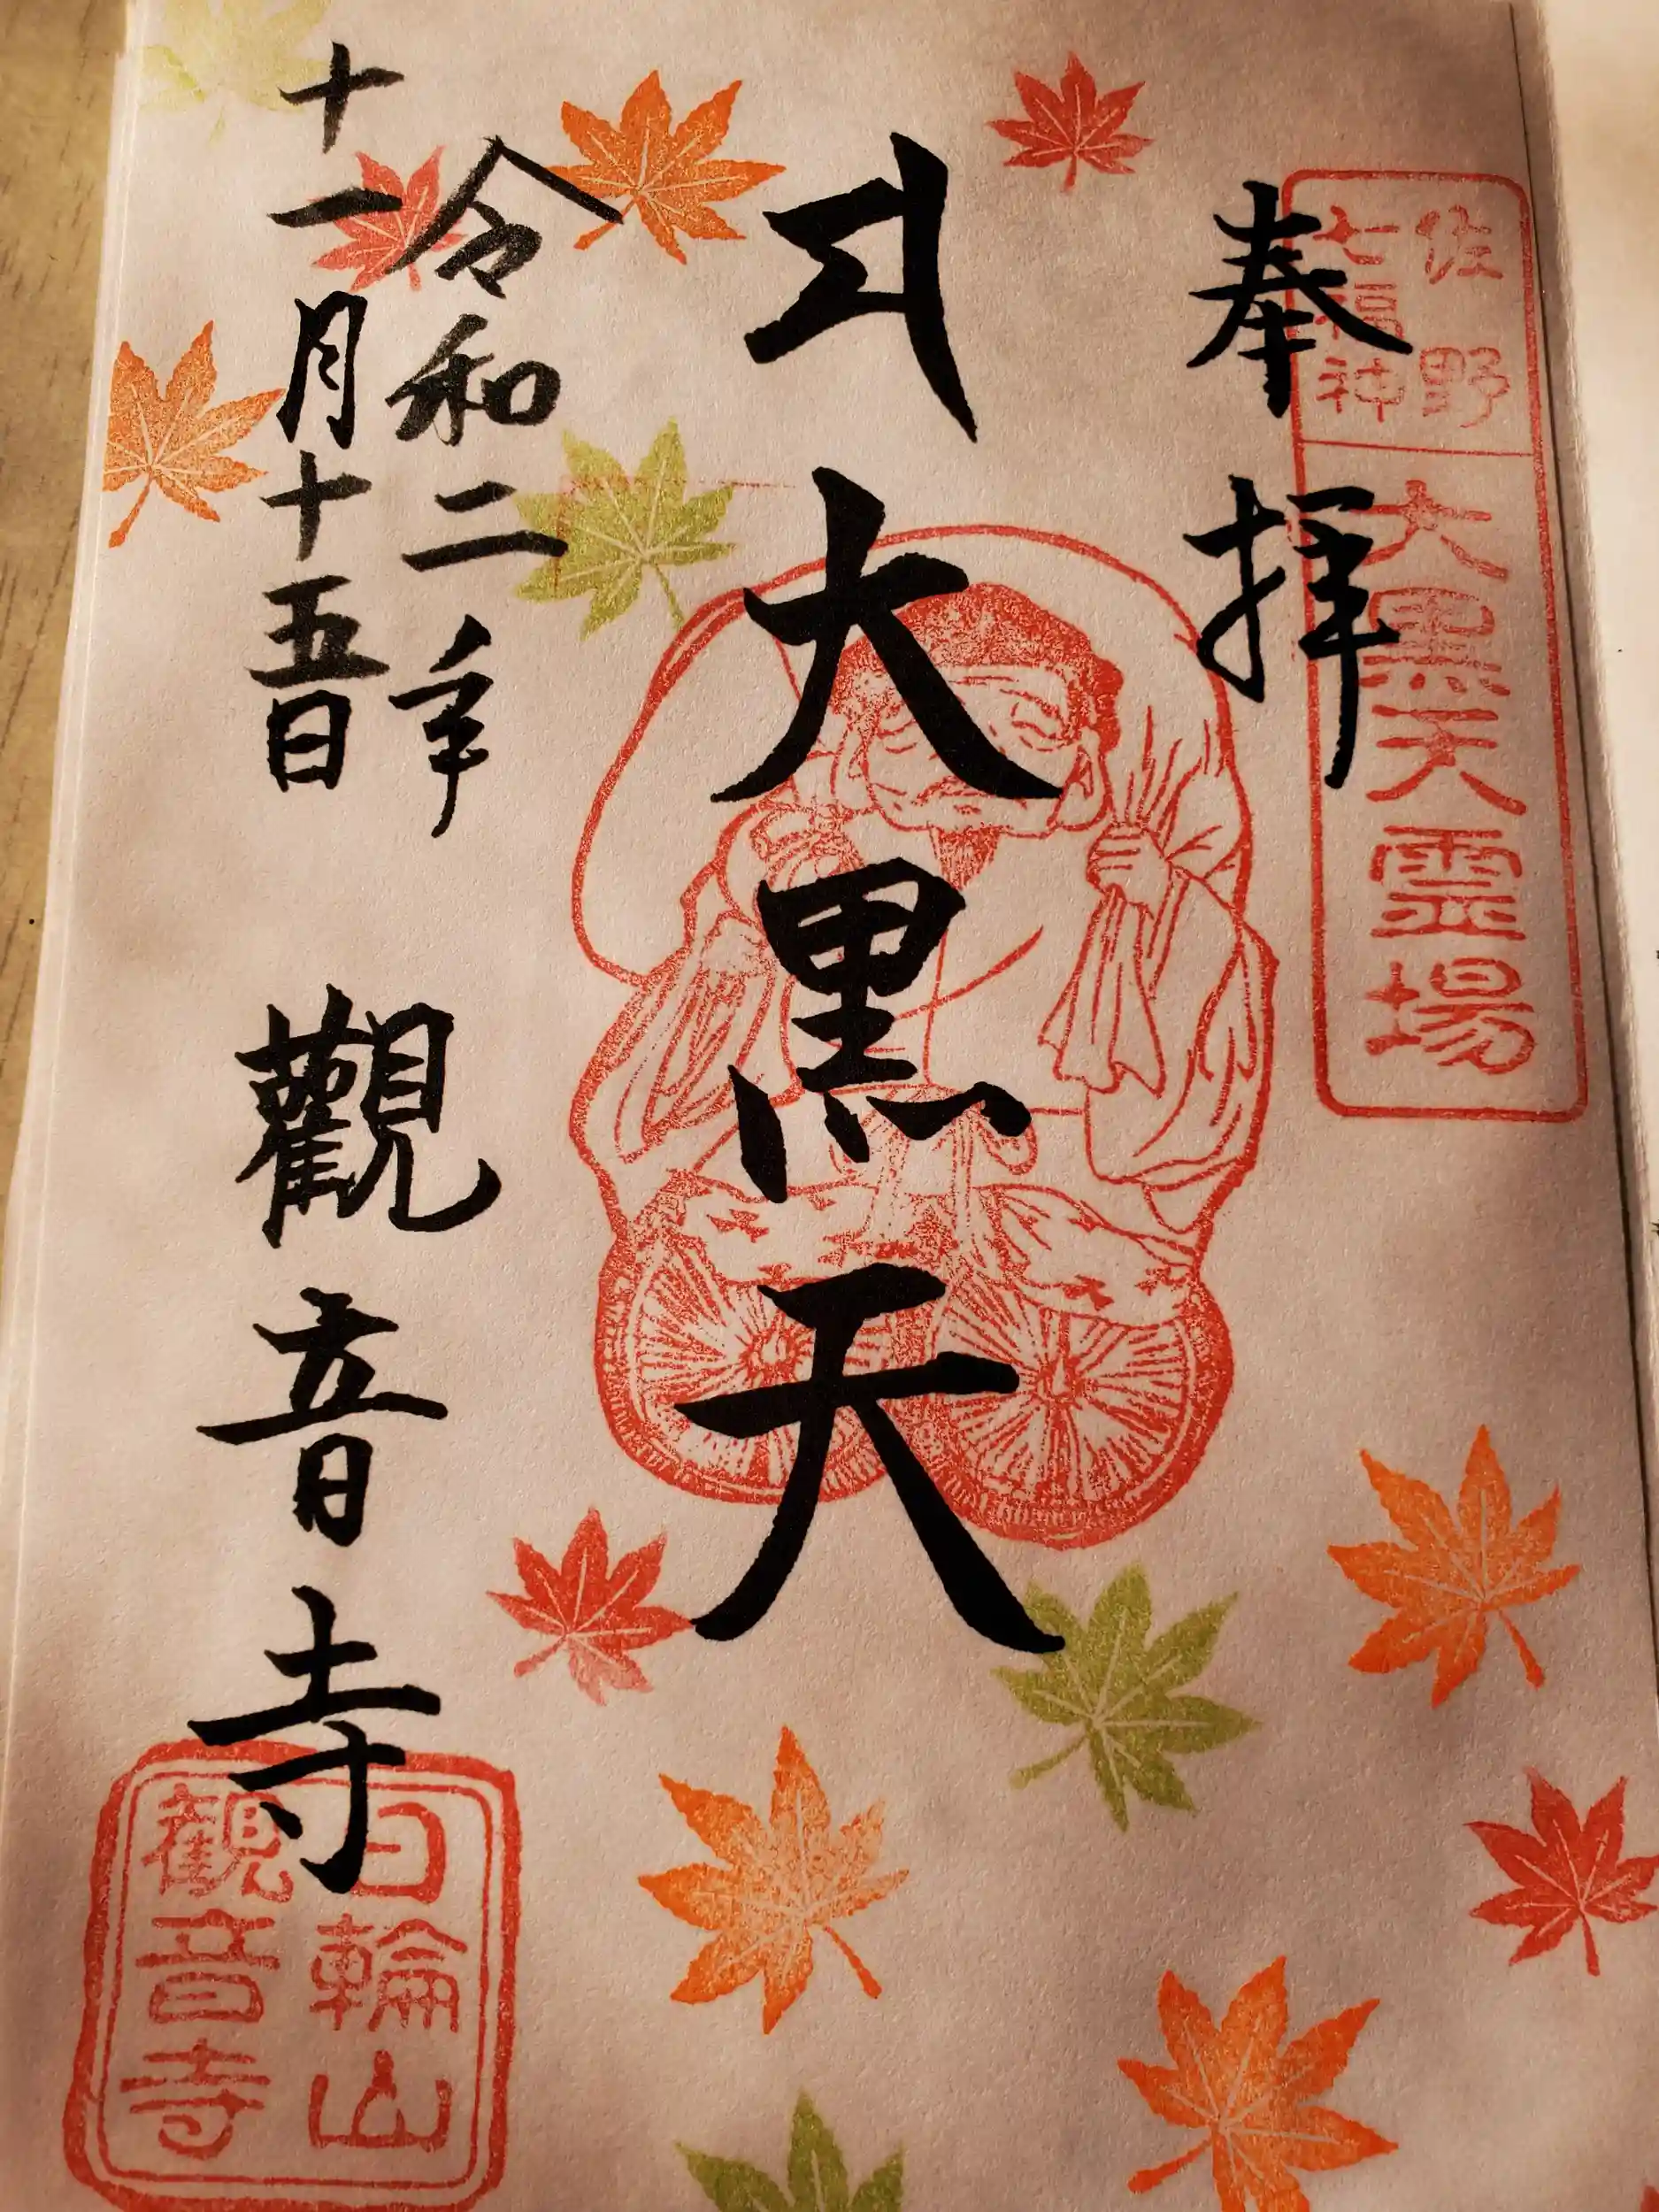 佐野
七福神
大黒天霊場
奉拝
大黒天
令和二年
十一月十五日
觀音寺
日輪山
観音寺